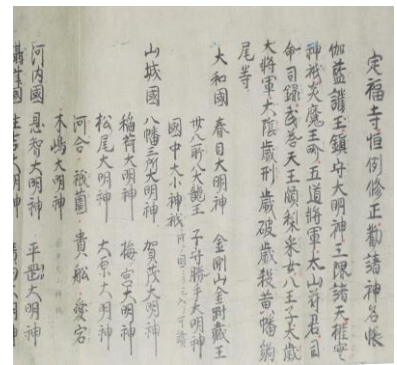 定福寺恒例修正勸請神名帳
伽藍護王鎮守大明神三隈諸天権実
神祇炎魔王畍五道将軍太山府君司
命司録武荅天王頗梨采女八王子大歳
大将軍大陰歳刑歳破歳殺黄幡豹
尾等
大和國 春日大明神 金剛山金剛蔵王
廿八所八大龍王 子守勝手大明神
國中大小神祇
山城國 八幡三所大明神 賀茂大明神
稲荷大明神 梅宮大明神
松尾大明神 大原大明神
河合 祇園 貴船 愛宕
木嶋大明神
河内國 恩智大明神 平野大明神
摂津國 住吉大明神 廣田大明神